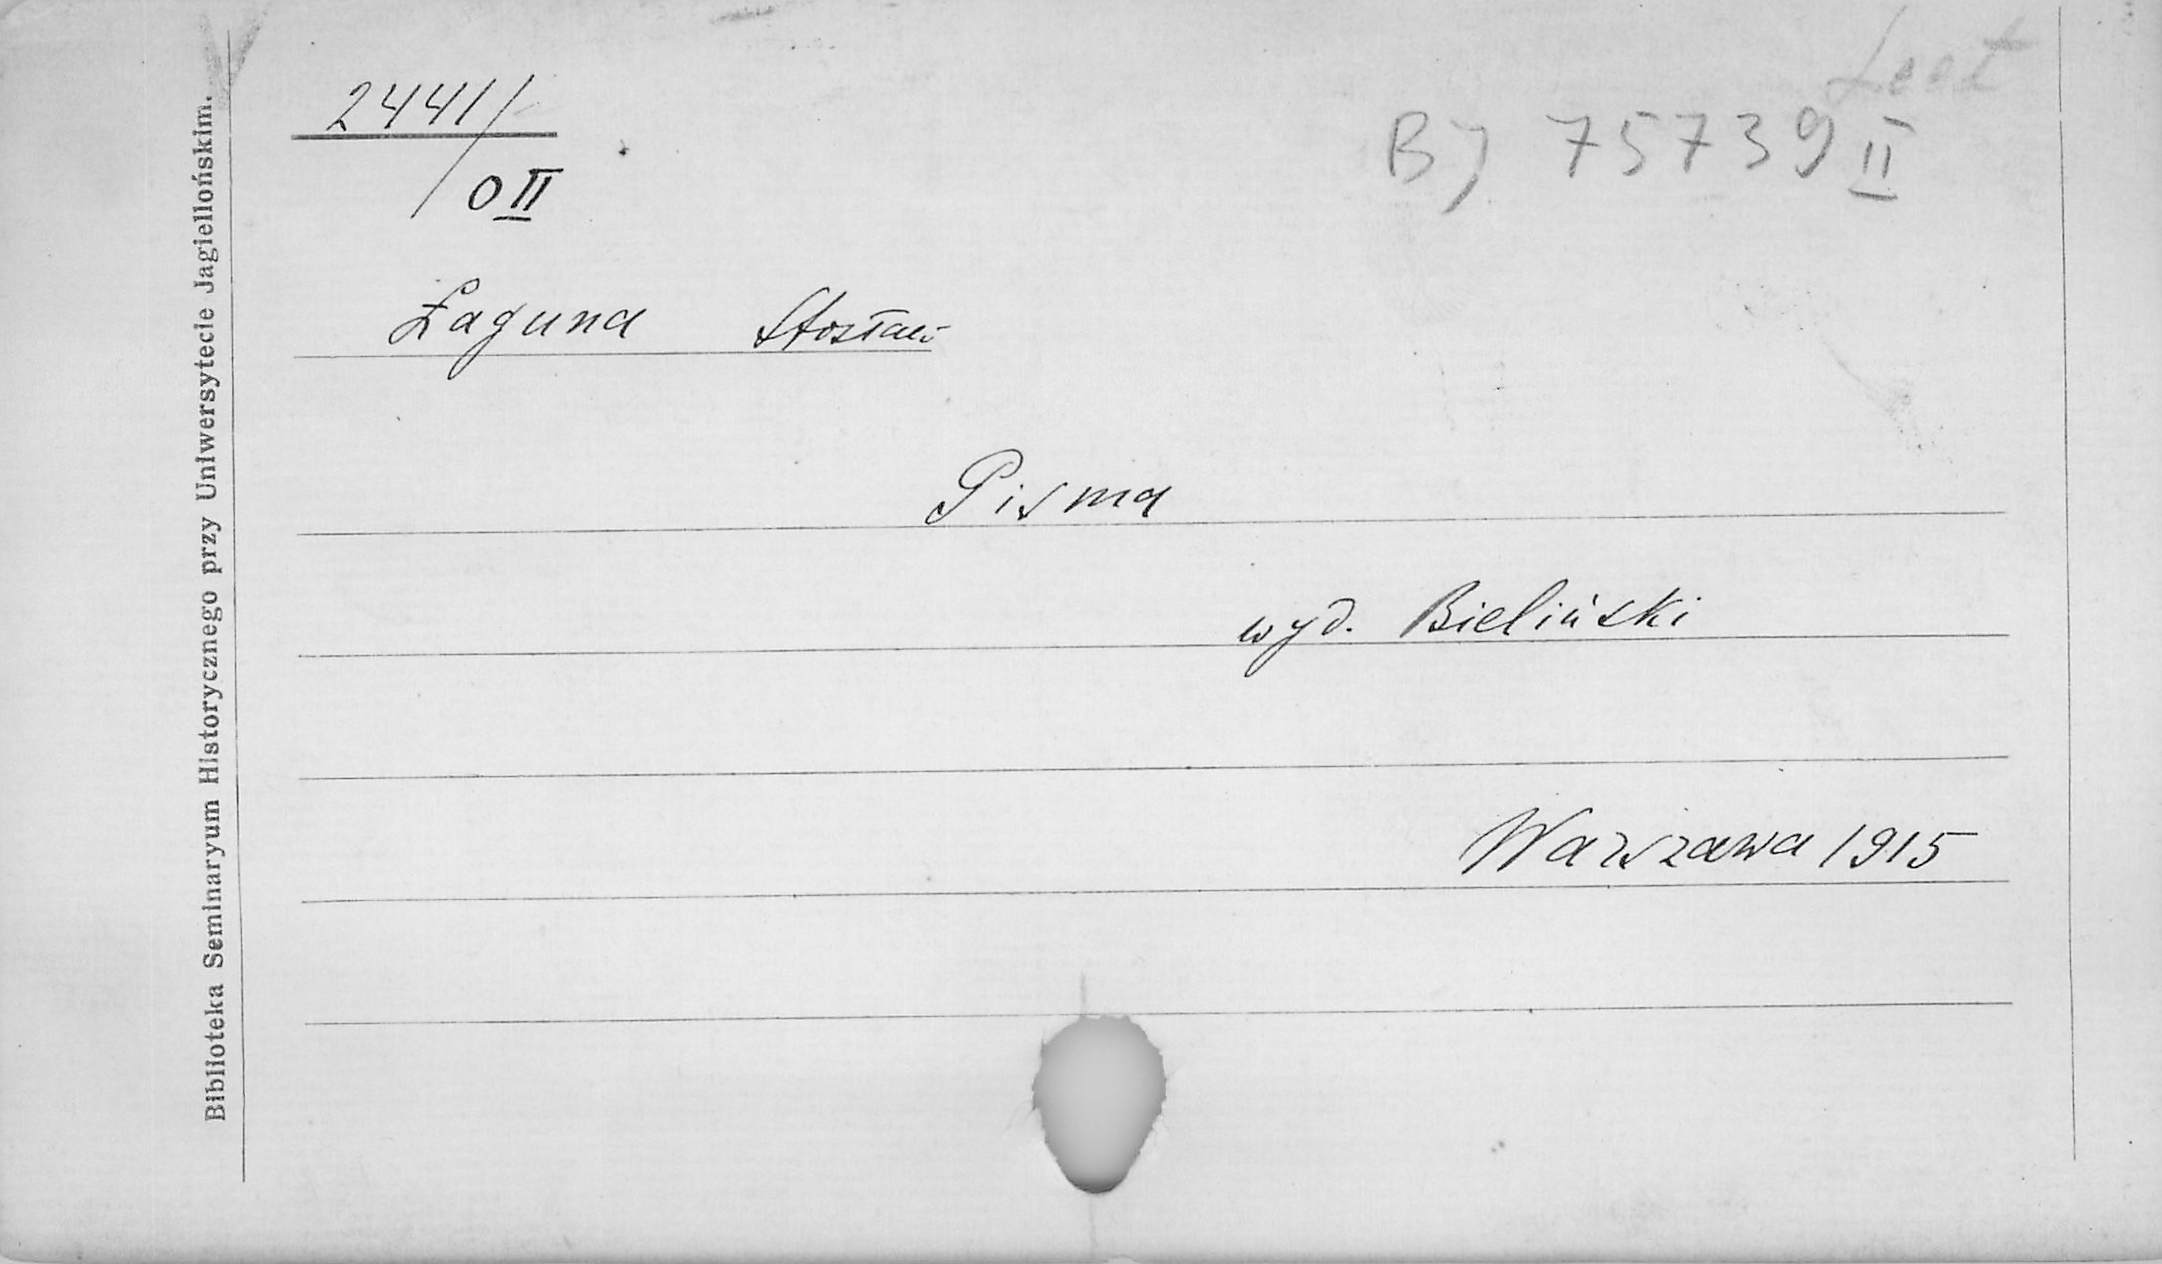 Biblioteka Seminaryum Historycznego przy Uniwersytecie Jagiellońskim.
2441/
BJ 75739 II
O II
Łaguna Stosław
Pisma
wyd. Bieliński
Warszawa 1915